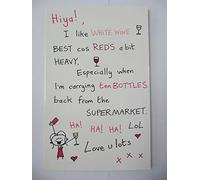 Hiya!,
I like WHITE WINE
BEST cos REDS a bit
HEAVY.
Especially when
I'm carrying ten BOTTLES
back from the
SUPERMARKET.
HA! HA! HA! LOL
Love u lots
x x x